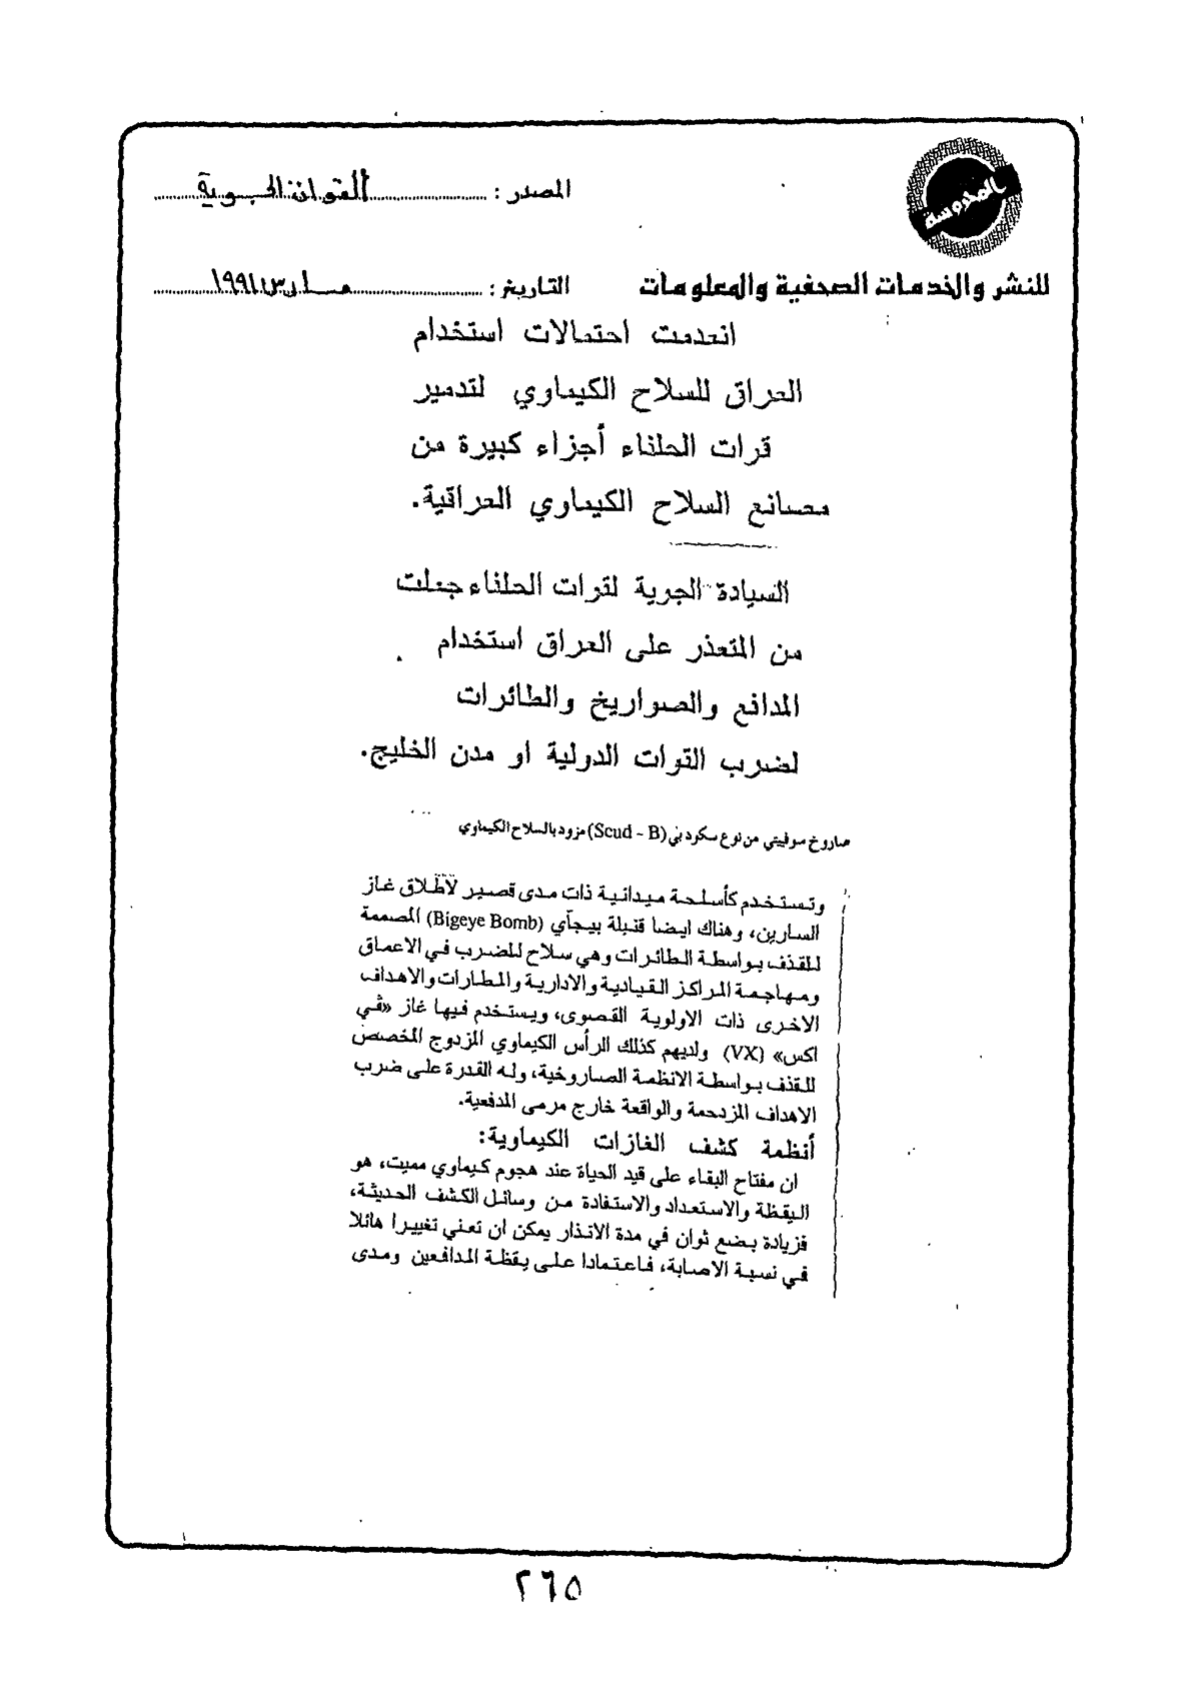 المحروسة
المصدر : القوات الجوية
للنشر والخدمات الصحفية والمعلومات
التاريخ : مارس ١٩٩١
انعدمت احتمالات استخدام
العراق للسلاح الكيماوي لتدمير
قوات الحلفاء أجزاء كبيرة من
مصانع السلاح الكيماوي العراقية.
السيادة الجوية لقوات الحلفاء جعلت
من المتعذر على العراق استخدام
المدافع والصواريخ والطائرات
لضرب القوات الدولية او مدن الخليج.
صاروخ سوفيتي من نوع سكود بي (Scud - B) مزود بالسلاح الكيماوي
وتستخدم كأسلحة ميدانية ذات مدى قصير لأطلاق غاز
السارين، وهناك ايضا قنبلة بيجآي (Bigeye Bomb) المصممة
للقذف بواسطة الطائرات وهي سلاح للضرب في الاعماق
ومهاجمة المراكز القيادية والادارية والمطارات والاهداف
الاخرى ذات الاولوية القصوى، ويستخدم فيها غاز «في
اكس» (VX) ولديهم كذلك الرأس الكيماوي المزدوج المخصص
للقذف بواسطة الانظمة الصاروخية، وله القدرة على ضرب
الاهداف المزدحمة والواقعة خارج مرمى المدفعية.
أنظمة كشف الغازات الكيماوية:
ان مفتاح البقاء على قيد الحياة عند هجوم كيماوي مميت، هو
اليقظة والاستعداد والاستفادة من وسائل الكشف الحديثة،
فزيادة بضع ثوان في مدة الانذار يمكن ان تعني تغييرا هائلا
في نسبة الاصابة، فاعتمادا على يقظة المدافعين ومدى
٢٦٥